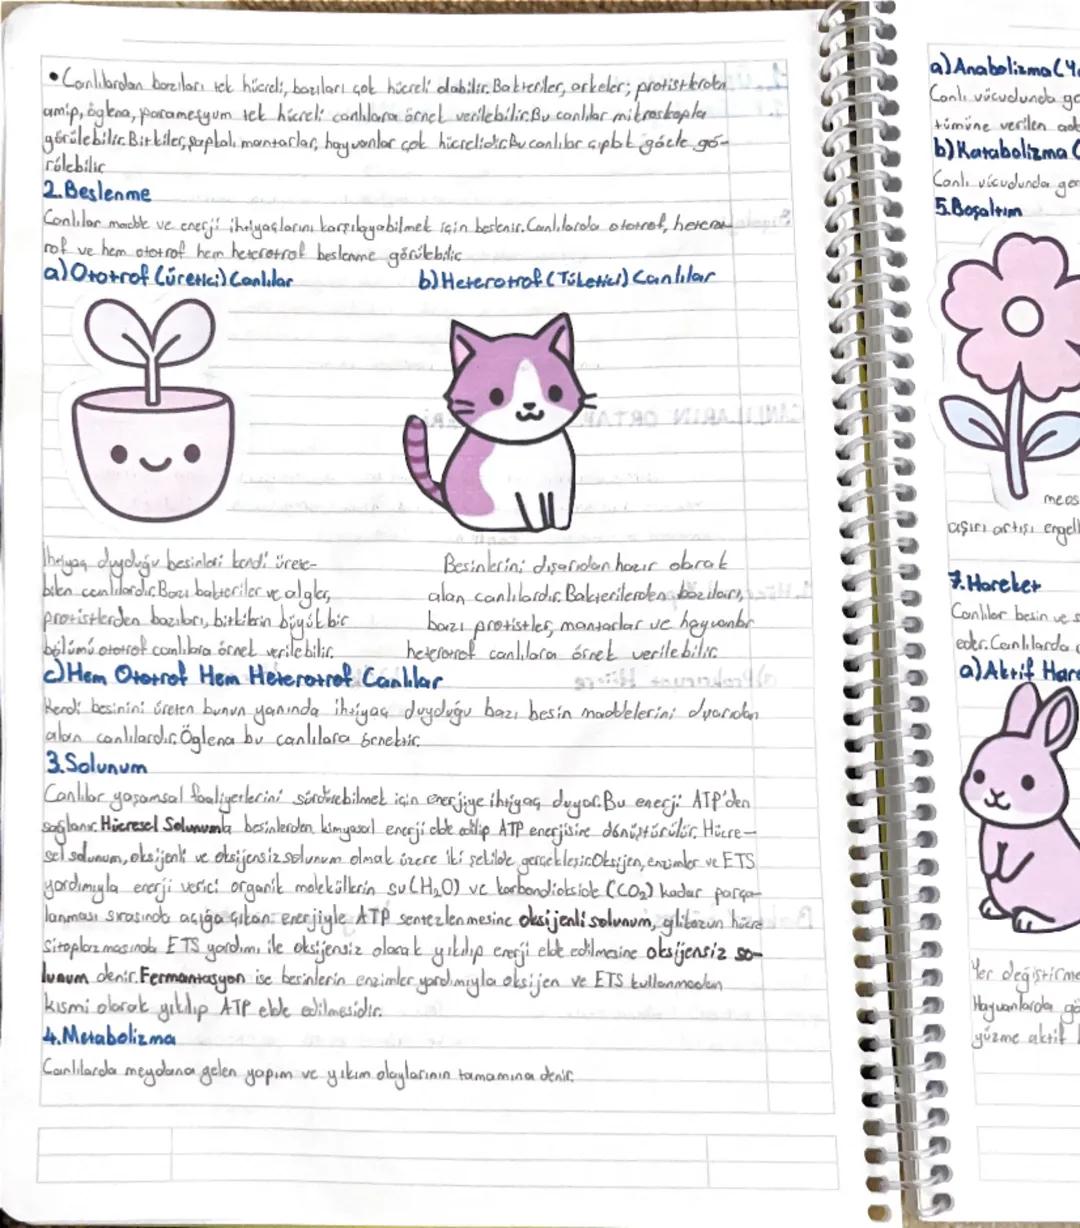 • Canlılardan bazıları tek hücreli, bazıları çok hücreli olabilir. Bakteriler, arkeler; protistlerden
amip, öglena, paramesyum tek hücreli canlılara örnek verilebilir. Bu canlılar mikroskopla
görülebilir. Bitkiler, şapkalı mantarlar, hayvanlar çok hücrelidir. Bu canlılar çıplak gözle gö-
rülebilir.
2. Beslenme
Canlılar madde ve enerji ihtiyaçlarını karşılayabilmek için beslenir. Canlılarda ototrof, heterot-
rof ve hem ototrof hem heterotrof beslenme görülebilir.
a) Ototrof (Üretici) Canlılar
b) Heterotrof (Tüketici) Canlılar
İhtiyaç duyduğu besinleri kendi ürete-
bilen canlılardır. Bazı bakteriler ve algler,
protistlerden bazıları, bitkilerin büyük bir
bölümü ototrof canlılara örnek verilebilir.
Besinlerini dışarıdan hazır olarak
alan canlılardır. Bakterilerden bazıları,
bazı protistler, mantarlar ve hayvanlar
heterotrof canlılara örnek verilebilir.
c) Hem Ototrof Hem Heterotrof Canlılar
Kendi besinini üreten bunun yanında ihtiyaç duyduğu bazı besin maddelerini dışarıdan
alan canlılardır. Öglena bu canlılara örnektir.
3. Solunum
Canlılar yaşamsal faaliyetlerini sürdürebilmek için enerjiye ihtiyaç duyar. Bu enerji ATP'den
sağlanır. Hücresel Solunumla besinlerden kimyasal enerji elde edilip ATP enerjisine dönüştürülür. Hücre-
sel solunum, oksijenli ve oksijensiz solunum olmak üzere iki şekilde gerçekleşir. Oksijen, enzimler ve ETS
yardımıyla enerji verici organik moleküllerin su (H₂O) ve karbondioksite (CO₂) kadar parça-
lanması sırasında açığa çıkan enerjiyle ATP sentezlenmesine oksijenli solunum, glikozun hücre
sitoplazmasında ETS yardımı ile oksijensiz olarak yıkılıp enerji elde edilmesine oksijensiz so-
lunum denir. Fermantasyon ise besinlerin enzimler yardımıyla oksijen ve ETS kullanmadan
kısmi olarak yıkılıp ATP elde edilmesidir.
4. Metabolizma
Canlılarda meydana gelen yapım ve yıkım olaylarının tamamına denir.
a) Anabolizma (
Canlı vücudunda
tümüne verilen
b) Katabolizma (
Canlı vücudunda
5. Boşaltım
aşırı artışı
7. Hareket
Canlılar besin ve
eder. Canlılarda
a) Aktif
Yer değiştirme
Hayvanlarda
yüzme aktif